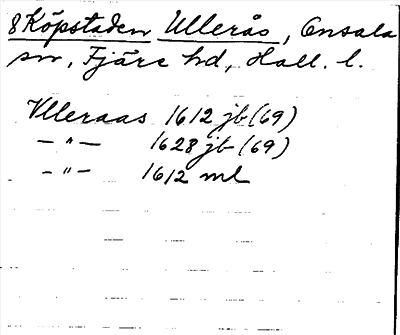 8 Köpstaden Ullerås, Onsala
sn, Fjäre hd, Hall. l.
Ulleraas 1612 jb (69)
—"— 1628 jb (69)
—"— 1612 ml